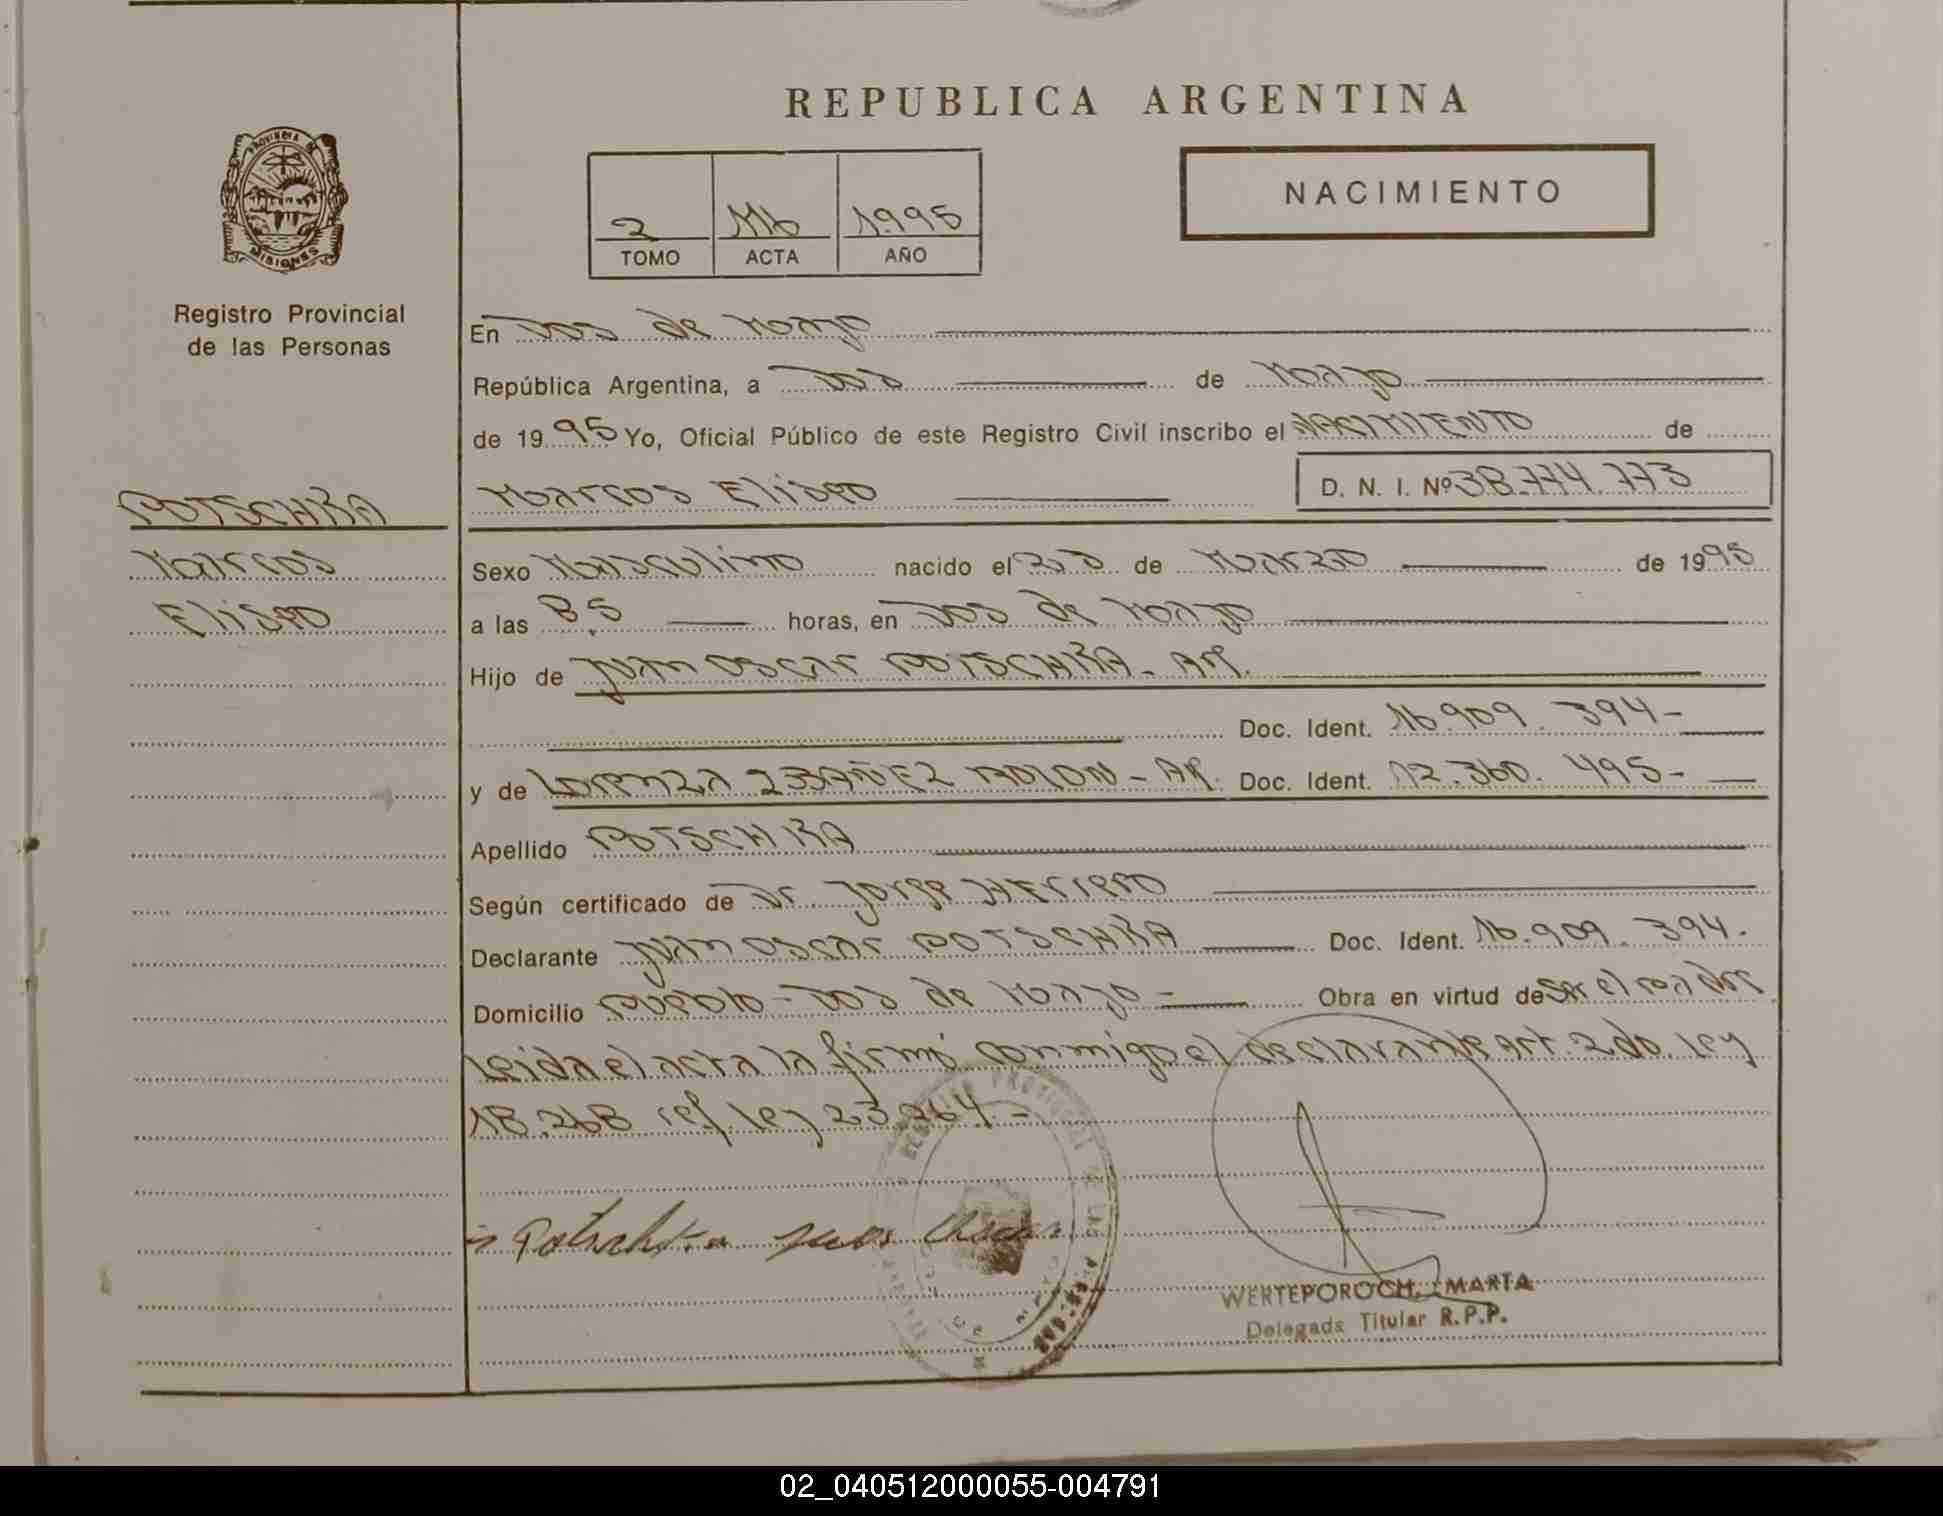 REPUBLICA ARGENTINA
PROVINCIA DE
MISIONES
Registro Provincial
de las Personas
2 116 1995
TOMO ACTA AÑO
NACIMIENTO
En Dos de Mayo
República Argentina, a Dos de Marzo
de 1995 Yo, Oficial Público de este Registro Civil inscribo el NACIMIENTO de
POTSCHKA
Marcos
Eliseo
Marcos Eliseo D. N. I. Nº 38.774.773
Sexo Masculino nacido el de Marzo de 1995
a las 8,5 horas, en Dos de Mayo
Hijo de Juan Oscar POTSCHKA - AR.
Doc. Ident. 16.909.394-
y de Lorenza IBAÑEZ - AR. Doc. Ident. 12.360.495-
Apellido POTSCHKA
Según certificado de Dr. Jorge Herrero
Declarante Juan Oscar POTSCHKA Doc. Ident. 16.909.394.
Domicilio Pueblo - Dos de Mayo - Obra en virtud de Ser el padre
Leida el acta la firmó conmigo el declarante Art. 2do. Ley
18.268 ref. ley 23.264.-
Potschka Juan Oscar
WERTEPOROCH, MARTA
Delegada Titular R.P.P.
02_040512000055-004791